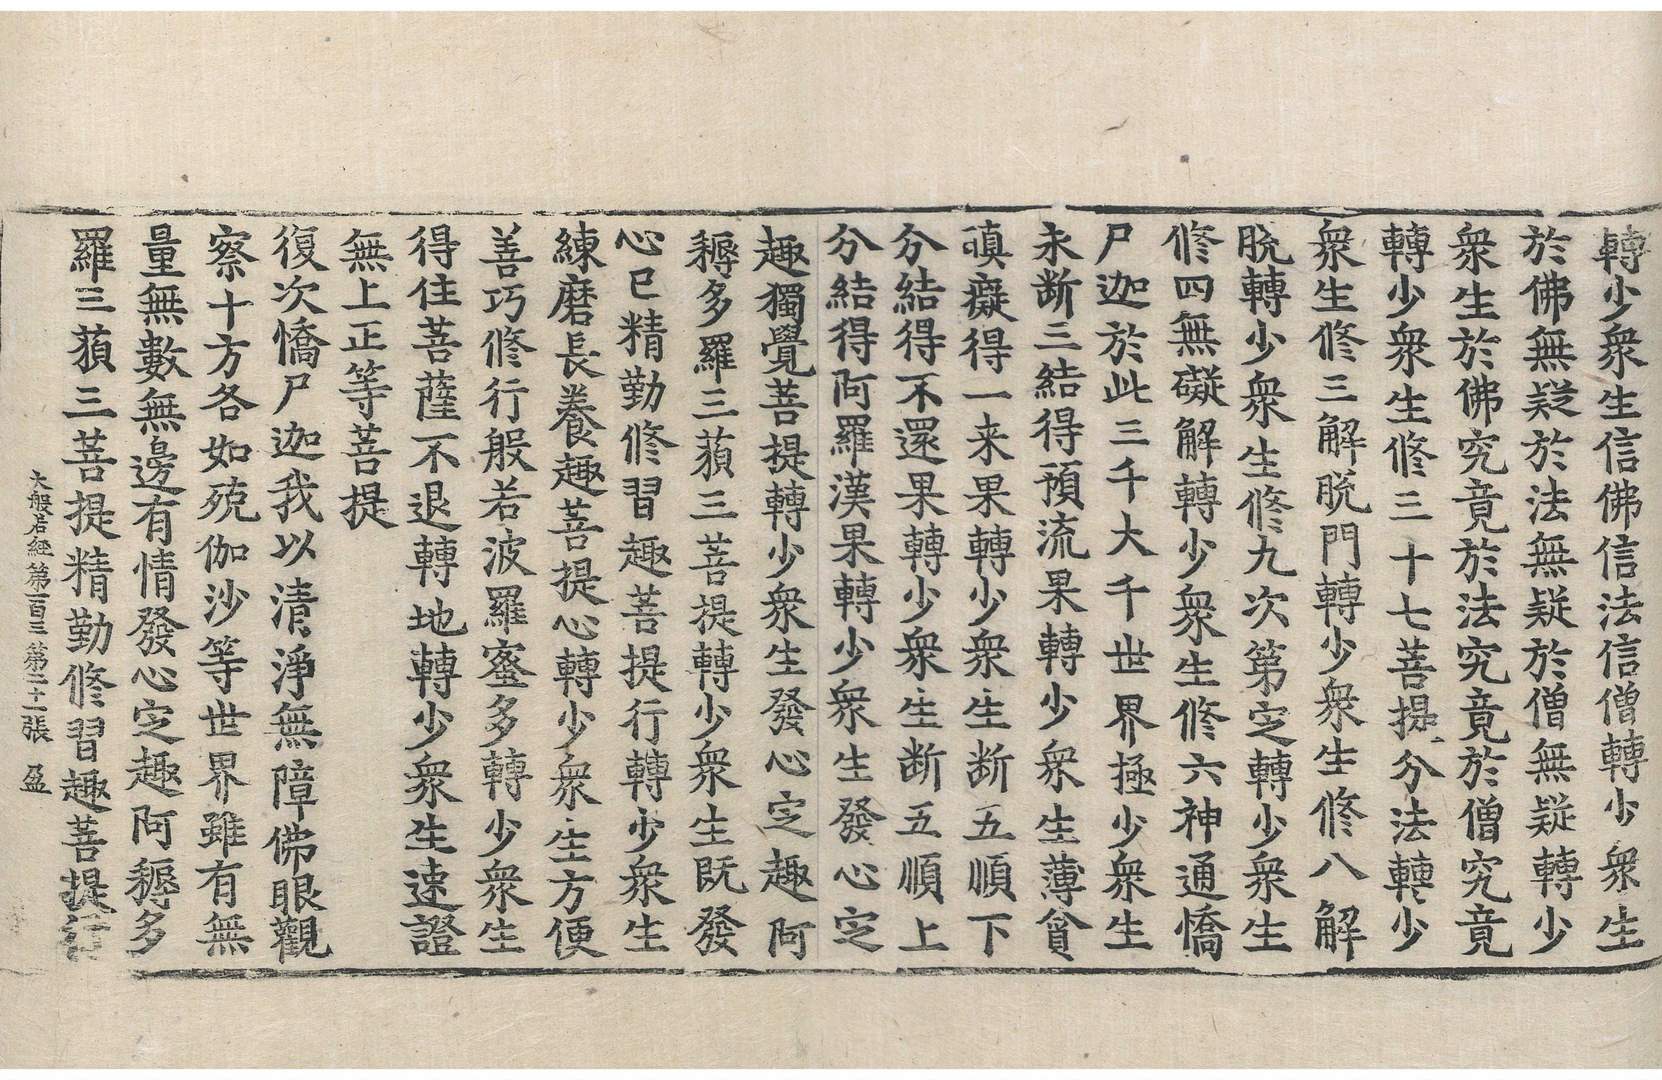 轉少衆生信佛信法信僧轉少衆生
於佛無疑於法無疑於僧無疑轉少
衆生於佛究竟於法究竟於僧究竟
轉少衆生修三十七菩提分法轉少
衆生修三解脫門轉少衆生修八解
脫轉少衆生修九次第定轉少衆生
修四無礙解轉少衆生修六神通憍
尸迦於此三千大千世界極少衆生
永断三結得預流果轉少衆生薄貪
瞋癡得一来果轉少衆生断五順下
分結得不還果轉少衆生断五順上
分結得阿羅漢果轉少衆生發心定
趣獨覺菩提轉少衆生發心定趣阿
耨多羅三藐三菩提轉少衆生既發
心已精勤修習趣菩提行轉少衆生
練磨長養趣菩提心轉少衆生方便
善巧修行般若波羅蜜多轉少衆生
得住菩薩不退轉地轉少衆生速證
無上正等菩提
復次憍尸迦我以清淨無障佛眼觀
察十方各如殑伽沙等世界雖有無
量無數無邊有情發心定趣阿耨多
羅三藐三菩提精勤修習趣菩提行
大般若經第一百三 第二十一張 盈